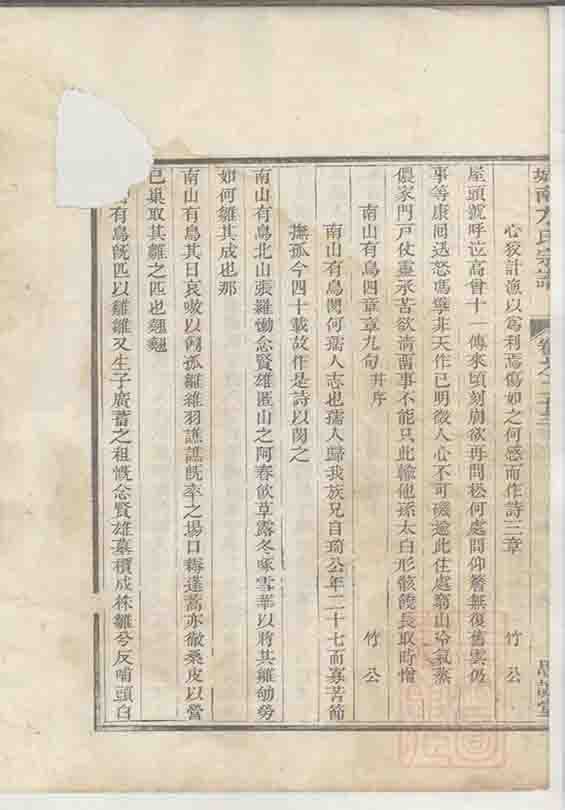 城南方氏宗譜
卷之二十三
心狡計漁以爲利焉傷如之何感而作詩三章 竹公
屋頭號呼泣高曾十一傳來頃刻崩欲再問松何處問仰瞻無復舊雲仍
事等康同迭怒馮寧非天作已明徵人心不可磯逾此住處窮山冷氣蒸
儂家門戶仗靈承苦欲清畱事不能只此輸他孫太白形骸饒長取時憎
南山有鳥四章章九句并序 竹公
南山有鳥閔何孺人志也孺人歸我族兄自琦公年二十七而寡苦節
撫孤今四十載故作是詩以閔之
南山有鳥北山張羅慟念賢雄匿山之阿春飲草露冬啄雪華以將其雛劬勞
如何雛其成也那
南山有鳥其日哀嗷以匔孤雛雛羽譙譙旣卒之瘏口辤蓬蒿亦徹桑皮以營
己巢取其雛之匹也翹翹
有鳥旣匹以雞雛又生子廣蓄之租慨念賢雄墓檟成株雛兮反哺頭白